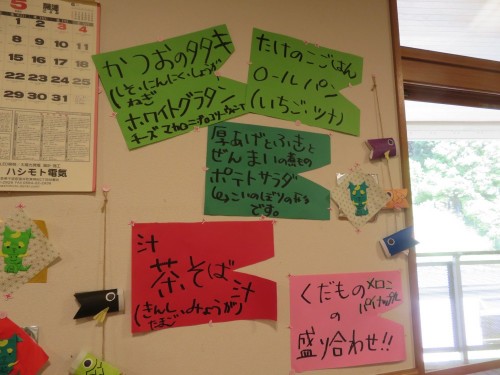 5
1 2 3 4
8 9 10 11
15 16 17 18
22 23 24 25
29 30 31
ハシモト電気
かつおのタタキ
(しそ・にんにく・しょうが
ねぎ
ホワイトグラタン
チーズ マカロニ
たけのこごはん
ロールパン
(いちご・ツナ)
厚あげとふきと
ぜんまいの煮もの
ポテトサラダ
です。
汁
茶そば
汁
(きんし・みょうが)
たまご
くだもの メロン
の
盛り合わせ!!